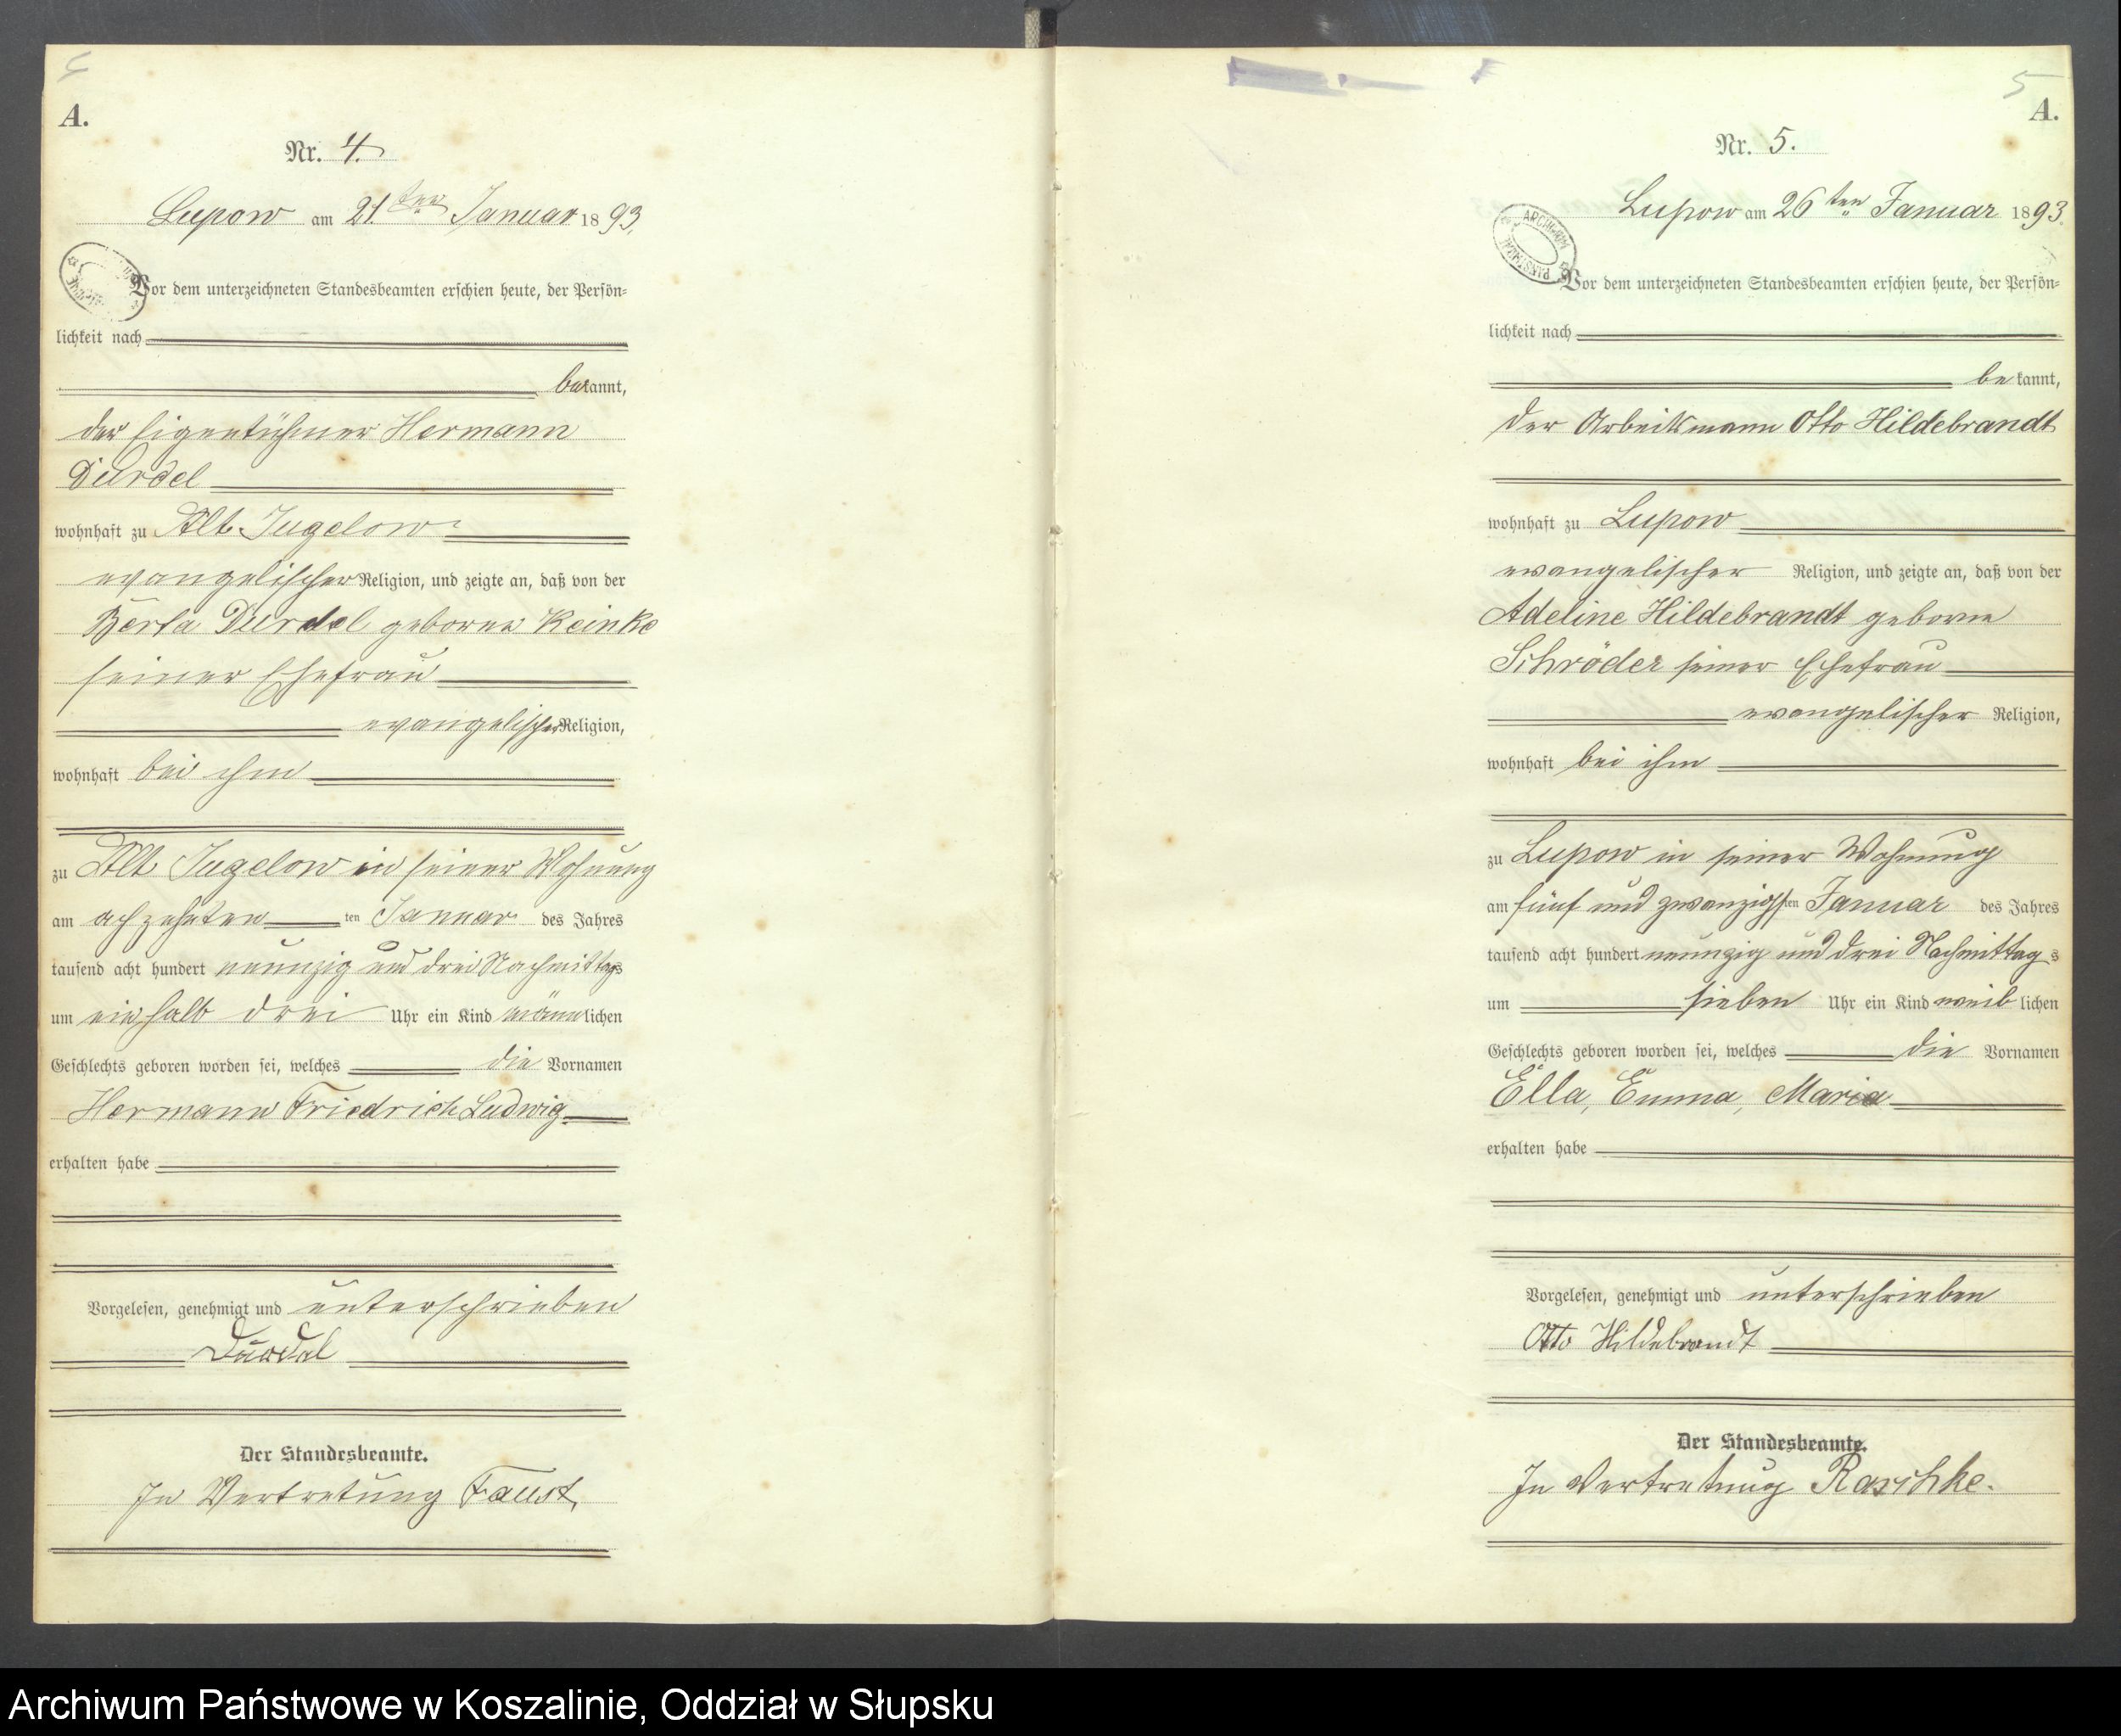 A.
Nr. 4.
Lupow am 21.ten Januar 1893.
Vor dem unterzeichneten Standesbeamten erschien heute, der Persön=
lichkeit nach
bekannt,
der Eigentühmer Hermann
Durdel
wohnhaft zu Alt Jugelow
evangelischer Religion, und zeigte an, daß von der
Berta Durdel geborne Reinke
seiner Ehefrau
evangelischer Religion,
wohnhaft bei ihm
zu Alt Jugelow in seiner Wohnung
am achzehnten ten Januar des Jahres
tausend acht hundert neunzig und drei Nachmittags
um einhalb drei Uhr ein Kind männlichen
Geschlechts geboren worden sei, welches die Vornamen
Hermann Friedrich Ludwig
erhalten habe
Vorgelesen, genehmigt und unterschrieben
Durdel
Der Standesbeamte.
In Vertretung Faust,
5
A.
Nr. 5.
Lupow am 26ten Januar 1893.
ARCHIWUM
Vor dem unterzeichneten Standesbeamten erschien heute, der Persön=
lichkeit nach
bekannt,
der Arbeitsmann Otto Hildebrandt
wohnhaft zu Lupow
evangelischer Religion, und zeigte an, daß von der
Adeline Hildebrandt geborne
Schröder seiner Ehefrau
evangelischer Religion,
wohnhaft bei ihm
zu Lupow in seiner Wohnung
am fünf und zwanzigsten Januar des Jahres
tausend acht hundert neunzig und drei Nachmittags
um sieben Uhr ein Kind weiblichen
Geschlechts geboren worden sei, welches die Vornamen
Ella, Emma, Maria
erhalten habe
Vorgelesen, genehmigt und unterschrieben
Otto Hildebrandt
Der Standesbeamte.
In Vertretung Raschke.
Archiwum Państwowe w Koszalinie, Oddział w Słupsku